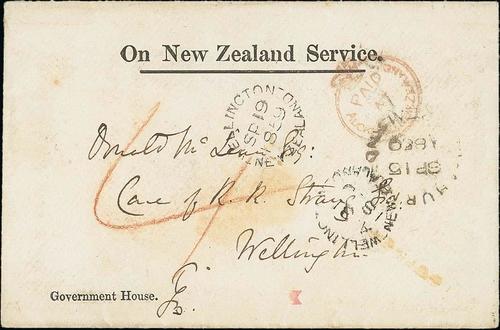 On New Zealand Service.
PAID
WELLINGTON
SP 19
1859
NEW ZEALAND
SP 15
Donald McLean Esq:
Care of R. R. Strang Esq
Wellington
Government House.